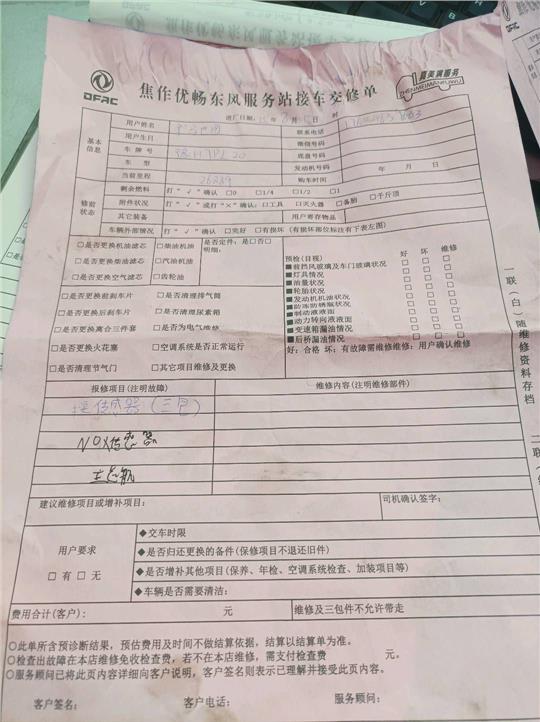 DFAC
焦作优畅东风服务站接车交修单
真美满服务
ZHENMEIMANFUWU
进厂日期: 年 8 月 日 时
基本信息
用户姓名 联系电话
用户生日 微信号码
车牌号 底盘号码
车型 发动机号码
当前里程 购车时间 年 月 日
修前状态
剩余燃料 打“√”确认 □0 □1/4 □1/2 □1
附件状况 打“√”或打“×”确认: □工具 □灭火器 □备胎 □千斤顶
其它装备 用户寄存物品
车辆外部情况 打“√”确认 □完好 □有损坏(有损坏部位标注有下表左图)
□是否更换机油滤芯 □柴油机油 是否定件: 是□否□
明细:
□是否更换柴油滤芯 □汽油机油
□是否更换空气滤芯 □齿轮油
□是否更换前刹车片 □是否清理排气筒
□是否更换后刹车片 □是否清理尿素箱
□是否更换离合三件套 □是否为电气维修
□是否更换火花塞 □空调系统是否正常运行
□是否清理节气门 □其它项目维修及更换
预检(目视) 好 坏 维修
■前挡风玻璃及车门玻璃状况 □ □ □
■灯具情况 □ □ □
■油量状况 □ □ □
■轮胎状况 □ □ □
■发动机机油状况 □ □ □
■防冻防锈瓶状况 □ □ □
■制动液液面 □ □ □
■动力转向液液面 □ □ □
■变速箱漏油情况 □ □ □
■后桥漏油情况 □ □ □
好: 合格 坏: 有故障需维修维修: 用户确认维修
报修项目(注明故障) 维修内容(注明维修部件)
传感器(三包)
NOX传感器
建议维修项目或增补项目: 司机确认签字:
用户要求
□有 □无
◆交车时限
◆是否归还更换的备件(保修项目不退还旧件)
◆是否增补其他项目(保养、年检、空调系统检查、加装项目等)
◆车辆是否需要清洁:
费用合计(客户): 元 维修及三包件不允许带走
○此单所含预诊断结果, 预估费用及时间不做结算依据, 结算以结算单为准。
○检查出故障在本店维修免收检查费, 若不在本店维修, 需支付检查费 元。
○服务顾问已将此页内容详细向客户说明, 客户签名则表示已理解并接受此页内容。
客户签名: 客户电话: 服务顾问:
一联(白)随维修资料存档
二联